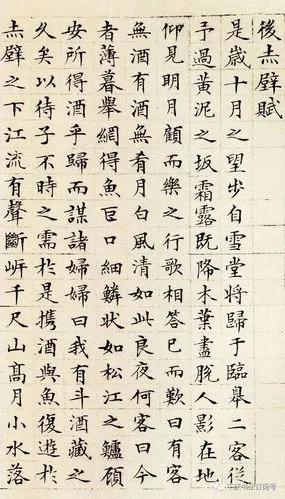 後赤壁賦
是歲十月之望步自雪堂將歸于臨舉二客從
予過黃泥之坂霜露既降木葉盡脫人影在地
仰見明月顧而樂之行歌相答已而歎曰有客
無酒有酒無肴月白風清如此良夜何客曰今
者薄暮舉網得魚巨口細鱗狀如松江之鱸顧
安所得酒乎歸而謀諸婦婦曰我有斗酒藏之
久矣以待子不時之需於是攜酒與魚復遊於
赤壁之下江流有聲斷岍千尺山髙月小水落
书法订阅号